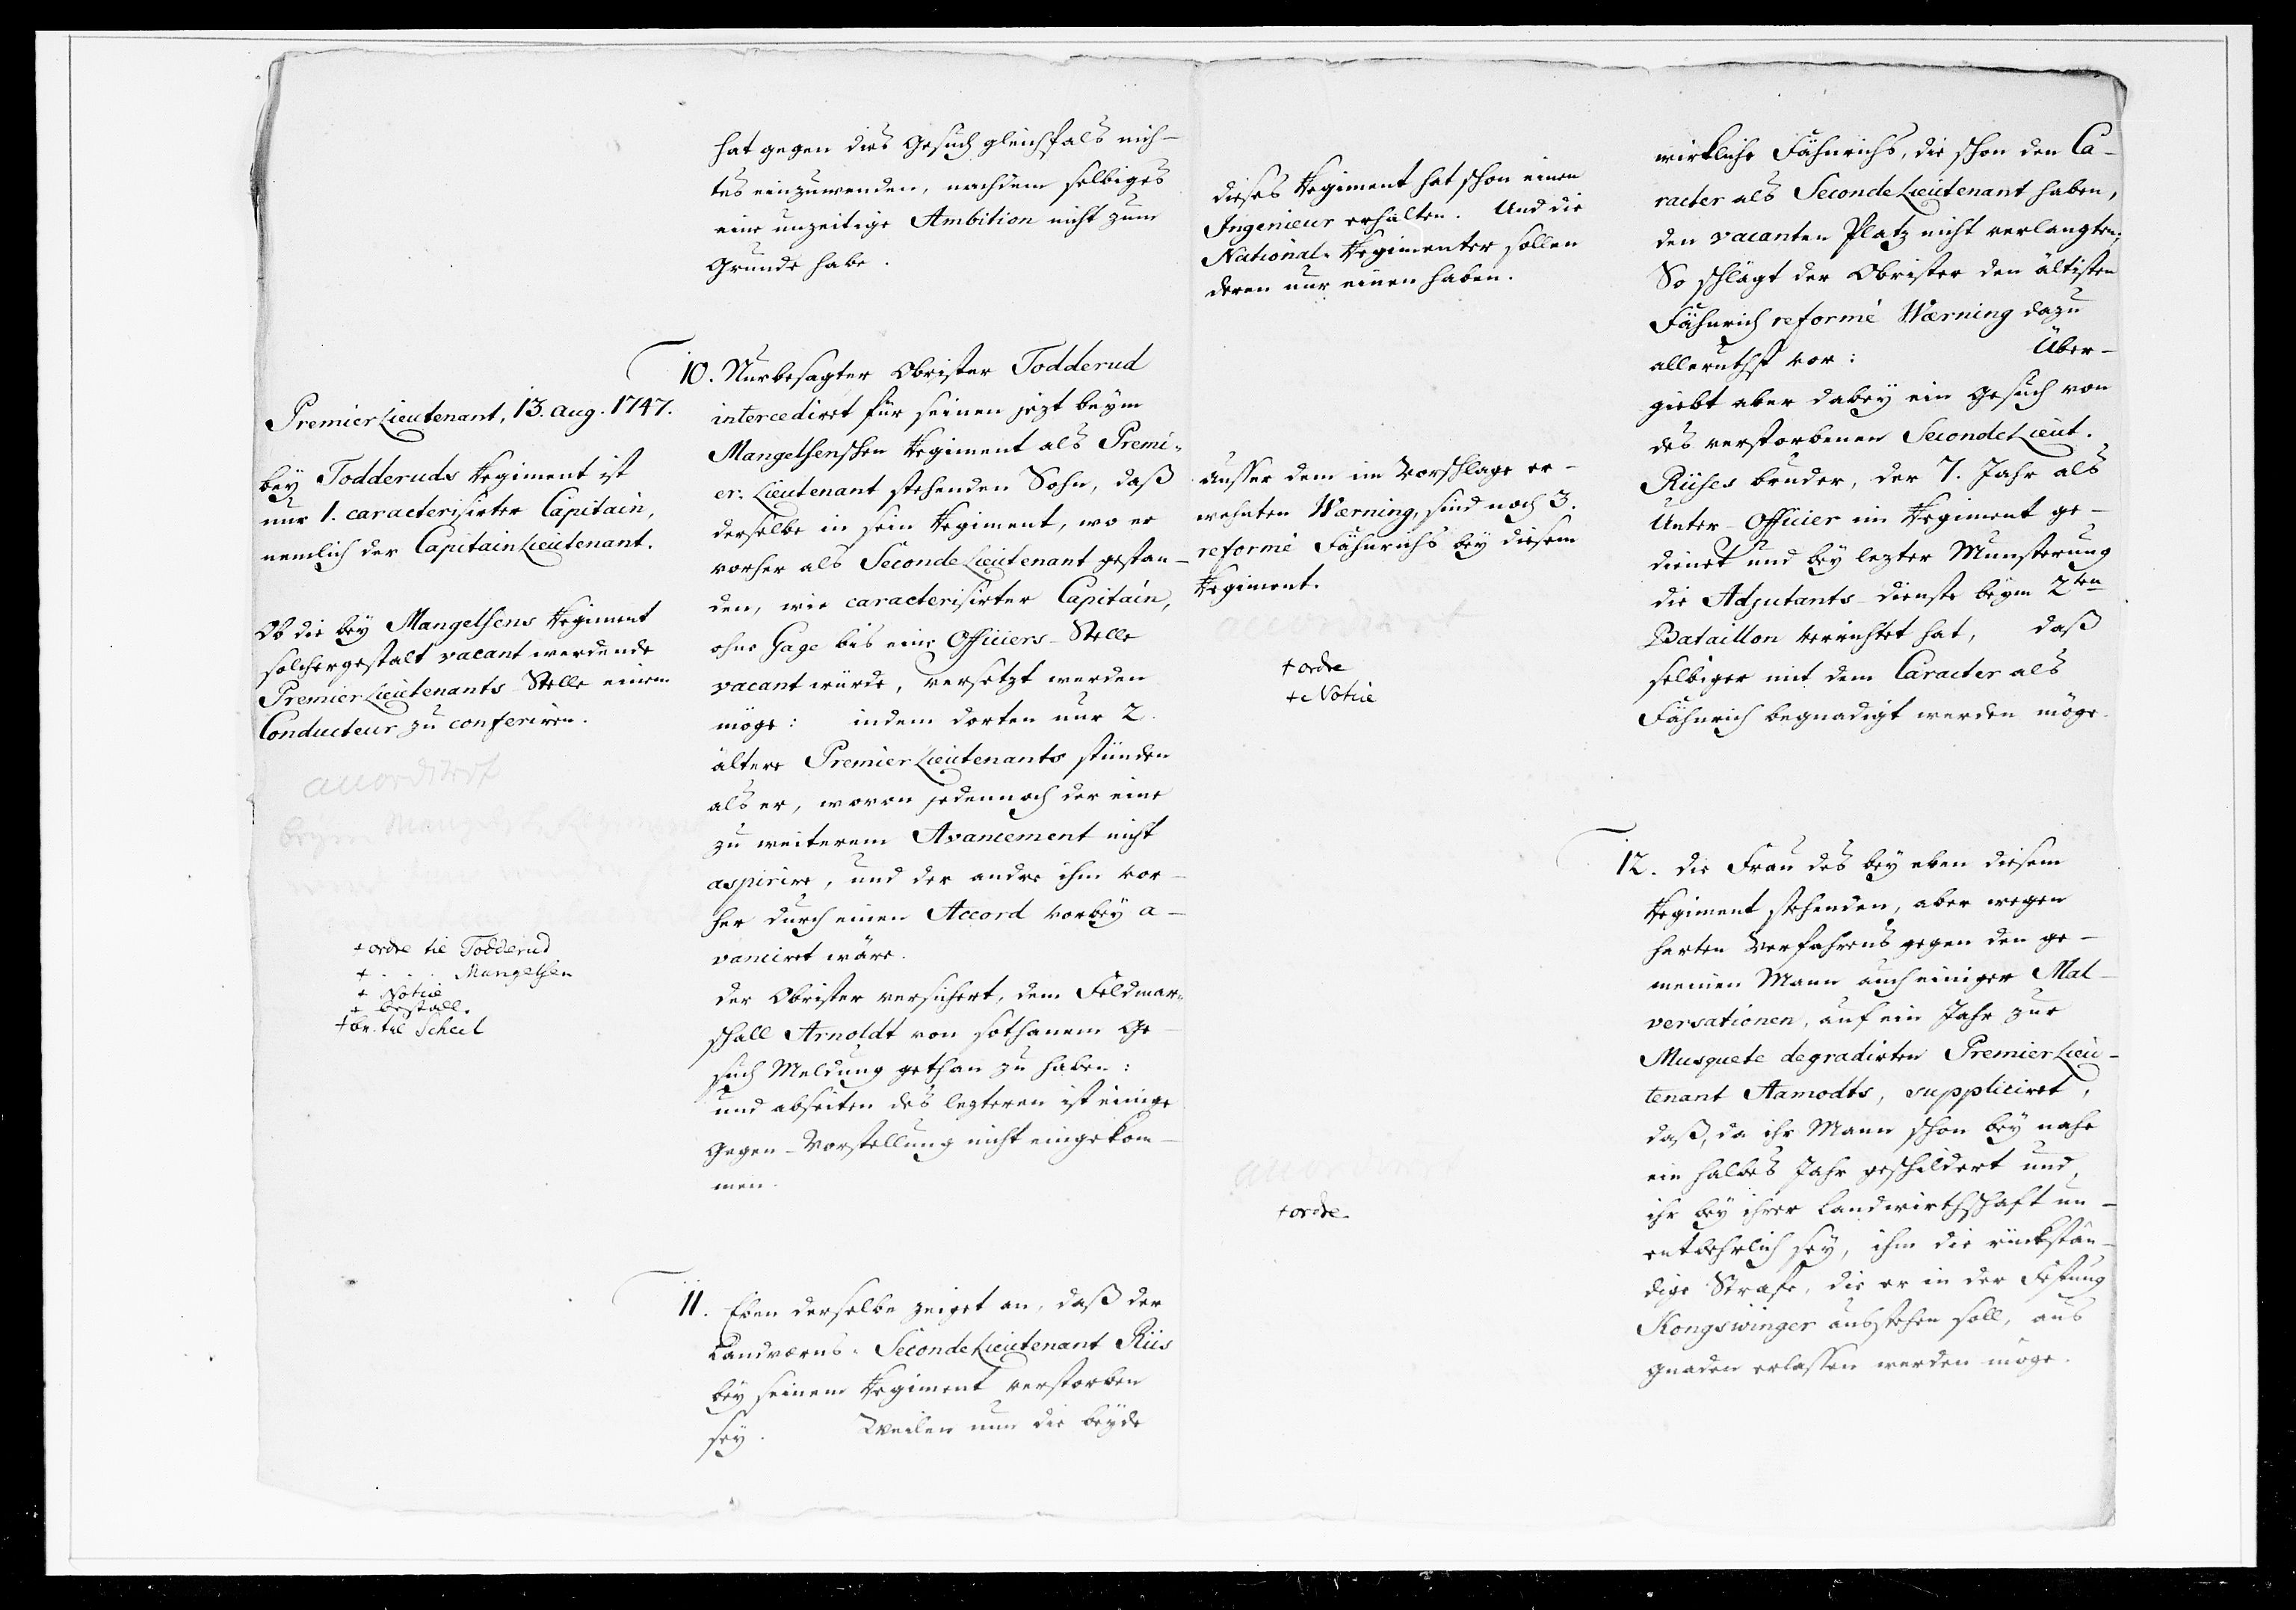 hat gegen dies Gesuch gleichfals nich-
tes einzuwenden, nachdem selbiges
eine unzeitige Ambition nicht zum
Grunde habe.
Premier Lieutenant, 13. aug. 1747.
bey Todderuds Regiment ist
nur 1. caracterisirter Capitain,
nemlich der Capitain Lieutenant.
Ob die bey Mangelsens Regiment
solchergestalt vacant werdende
Premier Lieutenants Stelle einem
Conducteur zu conferiren.
accordirt
beym
+ ordre til Todderud
+ . . . Mangelsen
+ Notice
+ bestall.
+ br. til Scheel
10. Nurbesagter Obrister Todderud
intercediret für seinen jezt beym
Mangelsenschen Regiment als Premi-
er-Lieutenant stehenden Sohn, daß
derselbe in sein Regiment, wo er
vorher als Seconde Lieutenant gestan-
den, wie caracterisirter Capitain,
ohne Gage bis eine Officiers-Stelle
vacant würde, versetzt werden
möge: indem dorten nur 2.
ältere Premier Lieutenants stünden
als er, wovon jedennoch der eine
zu weiterem Avancement nicht
aspirire, und der andre ihm vor-
her durch einen Accord vorbey a-
vanciret wäre.
Der Obrister versichert, dem Feldmar-
schall Arnoldt von sothanem Ge-
such Meldung gethan zu haben:
und abseiten des lezteren ist einige
Gegen-Vorstellung nicht eingekom-
men.
11. Eben derselbe zeiget an, daß der
Landværns-Seconde Lieutenant Riis
bey seinem Regiment verstorben
sey. Weilen nun die beyde
dieses Regiment hat schon einen
Ingenieur erhalten. Und die
National-Regimenter sollen
deren nur einen haben.
ausser dem im Vorschlage er-
wehnten Wærning, sind noch 3.
reformé Fähnrichs bey diesem
Regiment.
accordirt
+ ordre
+ Notice
+ ordre
wirkliche Fähnrichs, die schon den Ca-
racter als Seconde Lieutenant haben,
den vacanten Platz nicht verlangten;
So schlägt der Obrister den ältisten
Fähnrich reformé Wærning dazu
alleruthst vor: Über-
giebt aber dabey ein Gesuch von
des verstorbenen Seconde Lieut.
Riises bruder, der 7. Jahr als
Unter-Officier im Regiment ge-
dienet und bey lezter Munsterung
die Adjutants-dienste beym 2ten
Bataillon verrichtet hat, daß
selbiger mit dem Caracter als
Fähnrich begnadigt werden möge.
12. die Frau des bey eben diesem
Regiment stehenden, aber wegen
harten Verfahrens gegen den ge-
meinen Mann auch einiger Mal-
versationen, auf ein Jahr zur
Musquete degradirten Premier Lieu-
tenant Aamodts, suppliciret,
daß, da ihr Mann schon bey nahe
ein halbes Jahr geschildert und
ihr bey ihrer Landwirthschaft un-
entbehrlich sey, ihm die rückstän-
dige Strafe, die er in der Festung
Kongswinger ausstehen soll, aus
Gnaden erlassen werden möge.